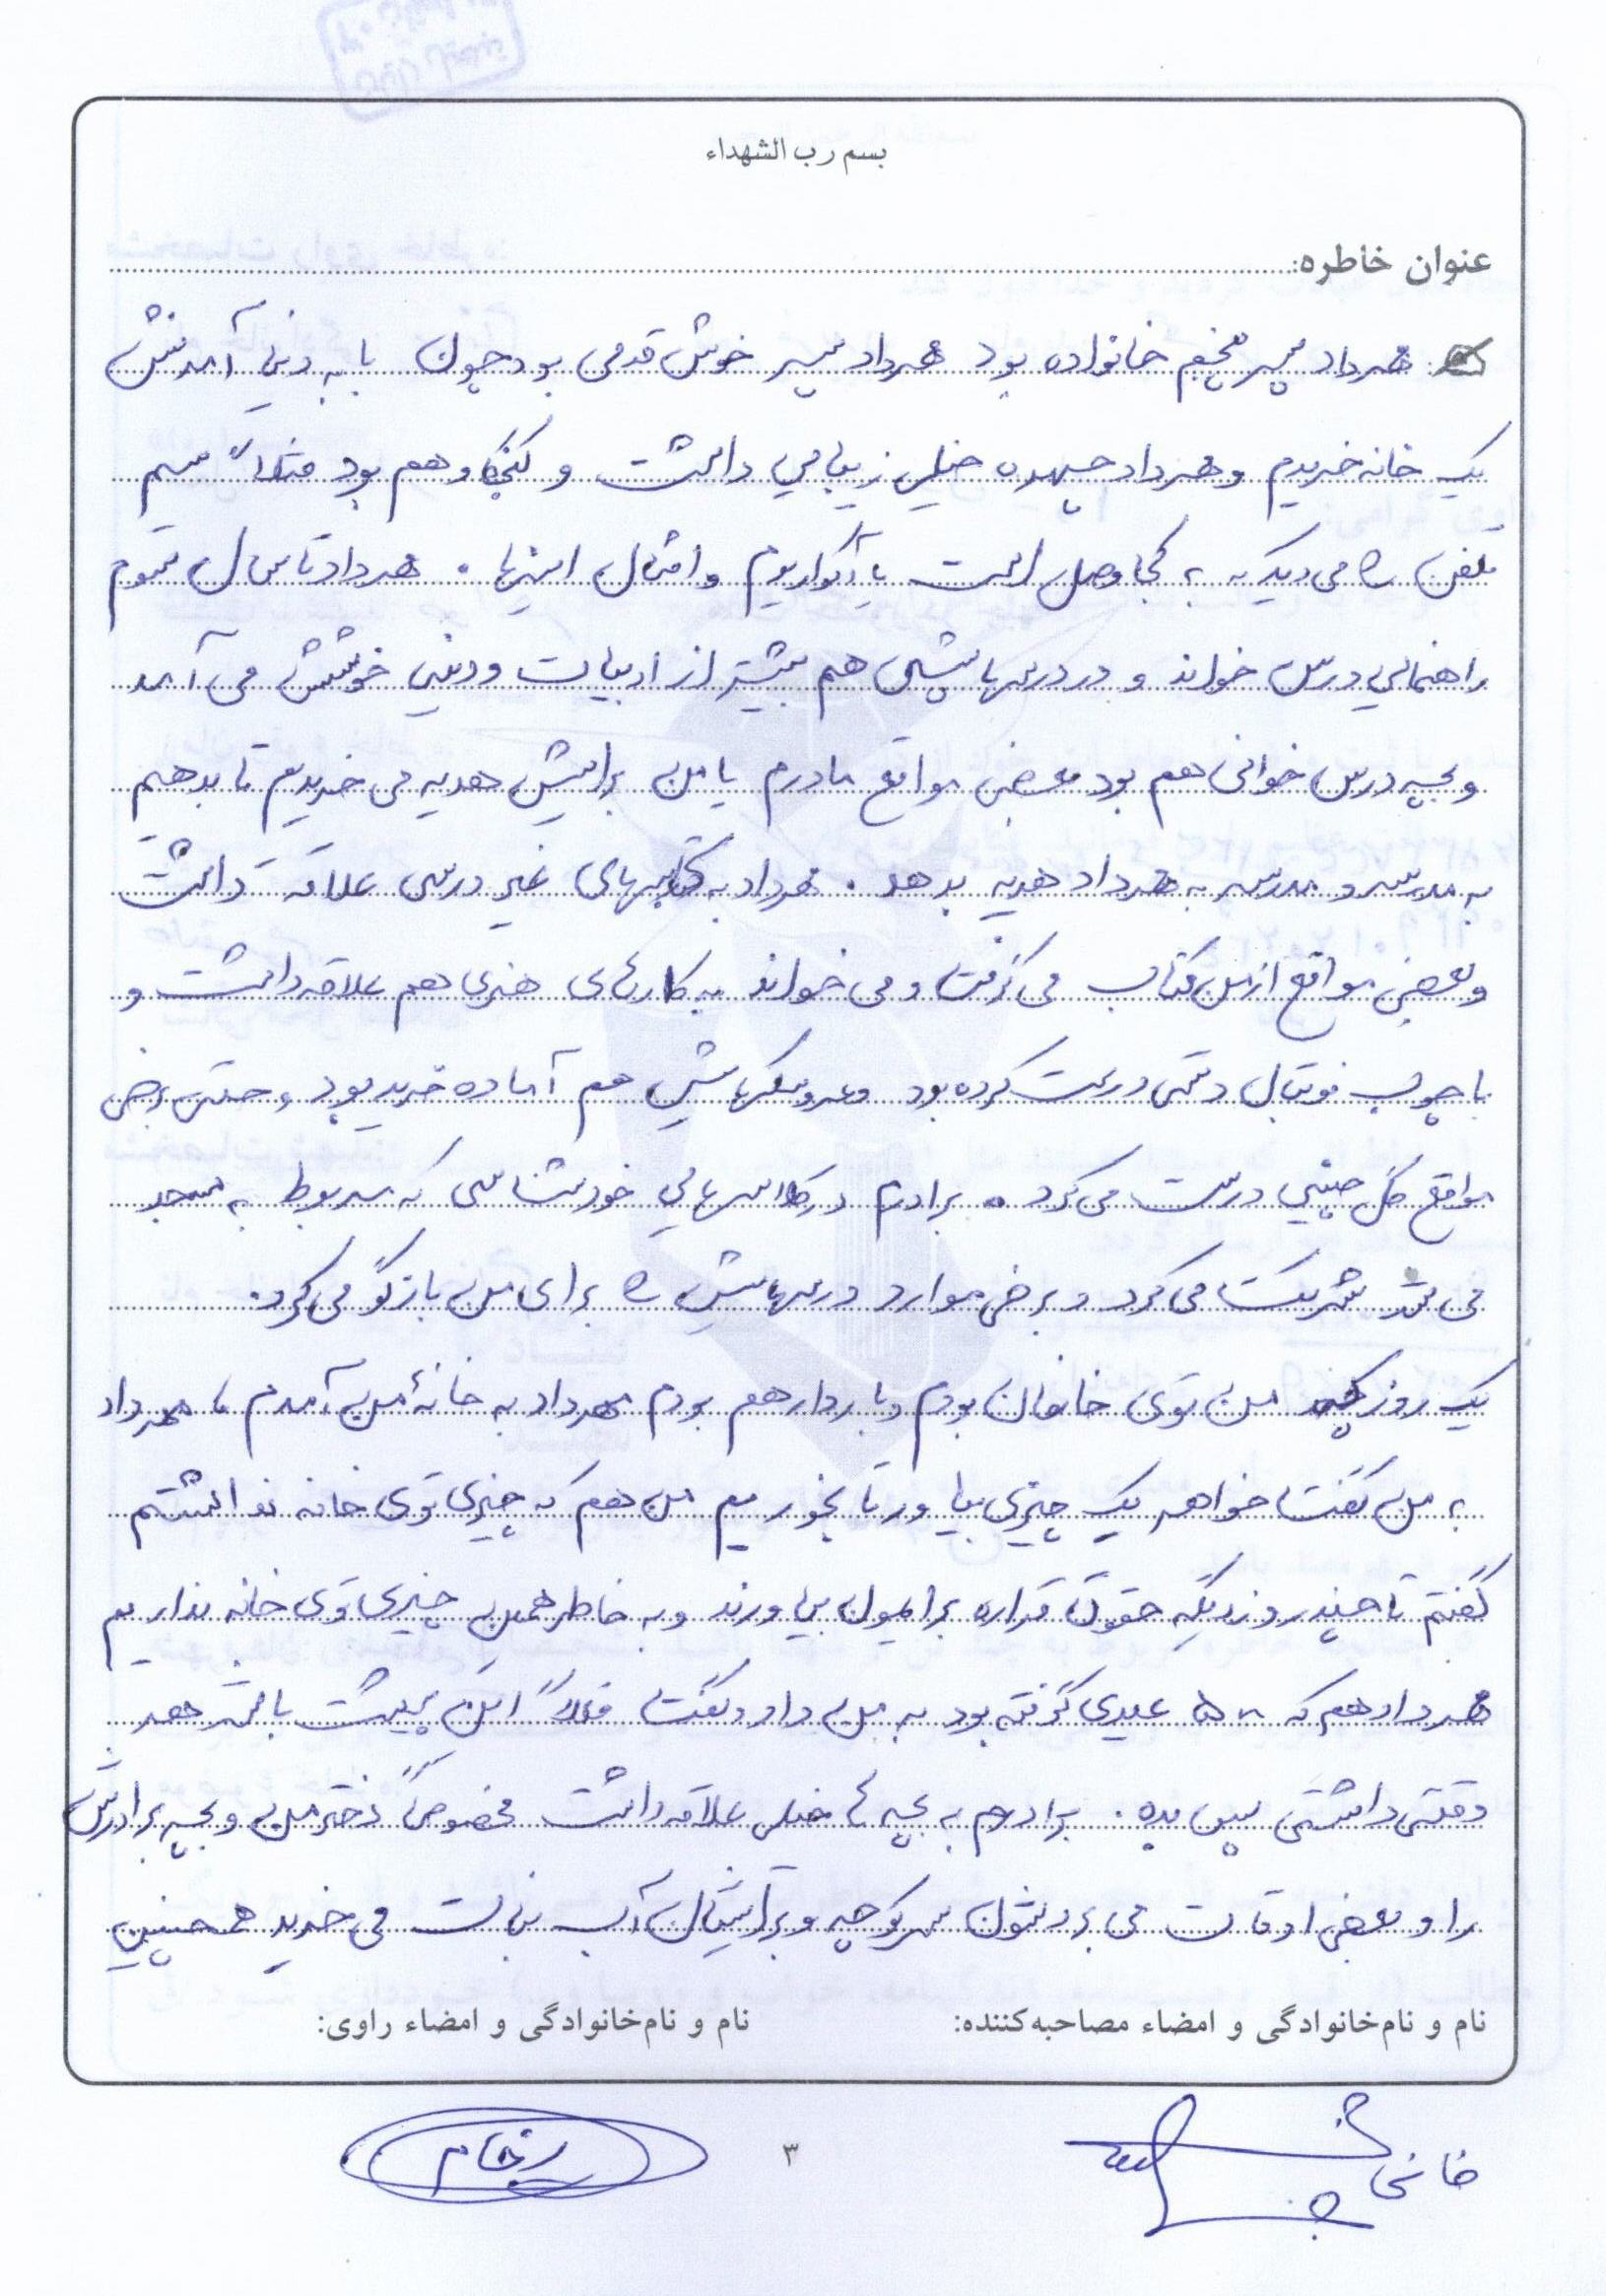 بسم رب الشهداء
عنوان خاطره:
مهرداد پسر پنجم خانواده بود مهرداد پسر خوش قدمی بود چون با به دنیا آمدنش
یک خانه خریدیم و مهرداد چهره خیلی زیبایی داشت و کنجکاو هم بود مثلاً سیم
تلفن را می دید که به کجا وصل است یا آکواریوم و امثال اینها . مهرداد تا سال سوم
راهنمایی درس خواند و در درسهایش هم بیشتر از ادبیات و دینی خوشش می آمد
و بچه درس خوانی هم بود بعضی مواقع مادرم یا من برایش هدیه می خریدیم تا بدهیم
به مدرسه و مدرسه به مهرداد هدیه بدهد . مهرداد به کتابهای غیر درسی علاقه داشت
و بعضی مواقع از من کتاب می گرفت و می خواند به کارهای هنری هم علاقه داشت و
با چوب فوتبال دستی درست کرده بود و عروسکهایش هم آماده خریده بود و حتی برخی
مواقع گل چینی درست می کرد . برادرم در کلاسهایی خودشناسی که مربوط به مسجد
می شد شرکت می کرد و برخی موارد درسهایش را برای من بازگو می کرد.
یک روز که من توی خانمان بودم و باردار هم بودم مهرداد به خانهٔ من آمدم ، مهرداد
به من گفت خواهر یک چیزی بیاور تا بخوریم من هم که چیزی توی خانه نداشتم
گفتم تا چند روز دیگه حقوق قراره برایمون بیاورند و به خاطر همین چیزی توی خانه نداریم
مهرداد هم که ۵۰۰ عیدی گرفته بود به من داد و گفت فعلاً این پیشت باشد بعد
وقتی داشتی پس بده . برادرم به بچه ها خیلی علاقه داشت مخصوصاً دختر من و بچه برادرش
را و بعضی اوقات می بردشون سر کوچه و برایشان آب نبات می خرید همچنین
نام و نام‌خانوادگی و امضاء مصاحبه‌کننده:
نام و نام‌خانوادگی و امضاء راوی:
خانی
۳